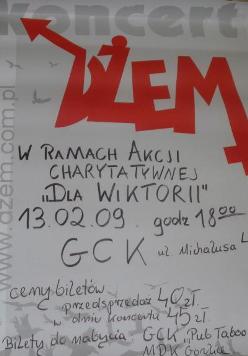 koncert
DŻEM
www.dzem.com.pl
W RAMACH AKCJI
CHARYTATYWNEJ
"DLA WIKTORII"
13.02.09. godz 18.00
GCK ul. Michalusa
ceny biletów
przedsprzedaż 40 zł
w dniu koncertu 45 zł
Bilety do nabycia GCK "Pub Taboo"
MDK Gorlice